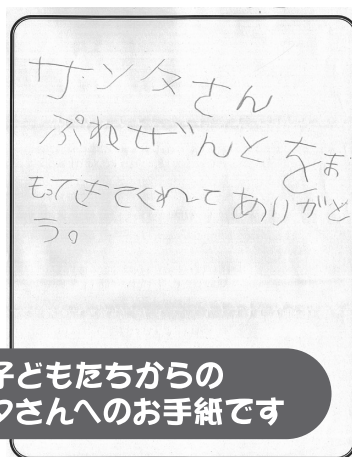 サンタさん
ぷれぜんとをま
もってきてくれてありがと
う。
子どもたちからの
タさんへのお手紙です